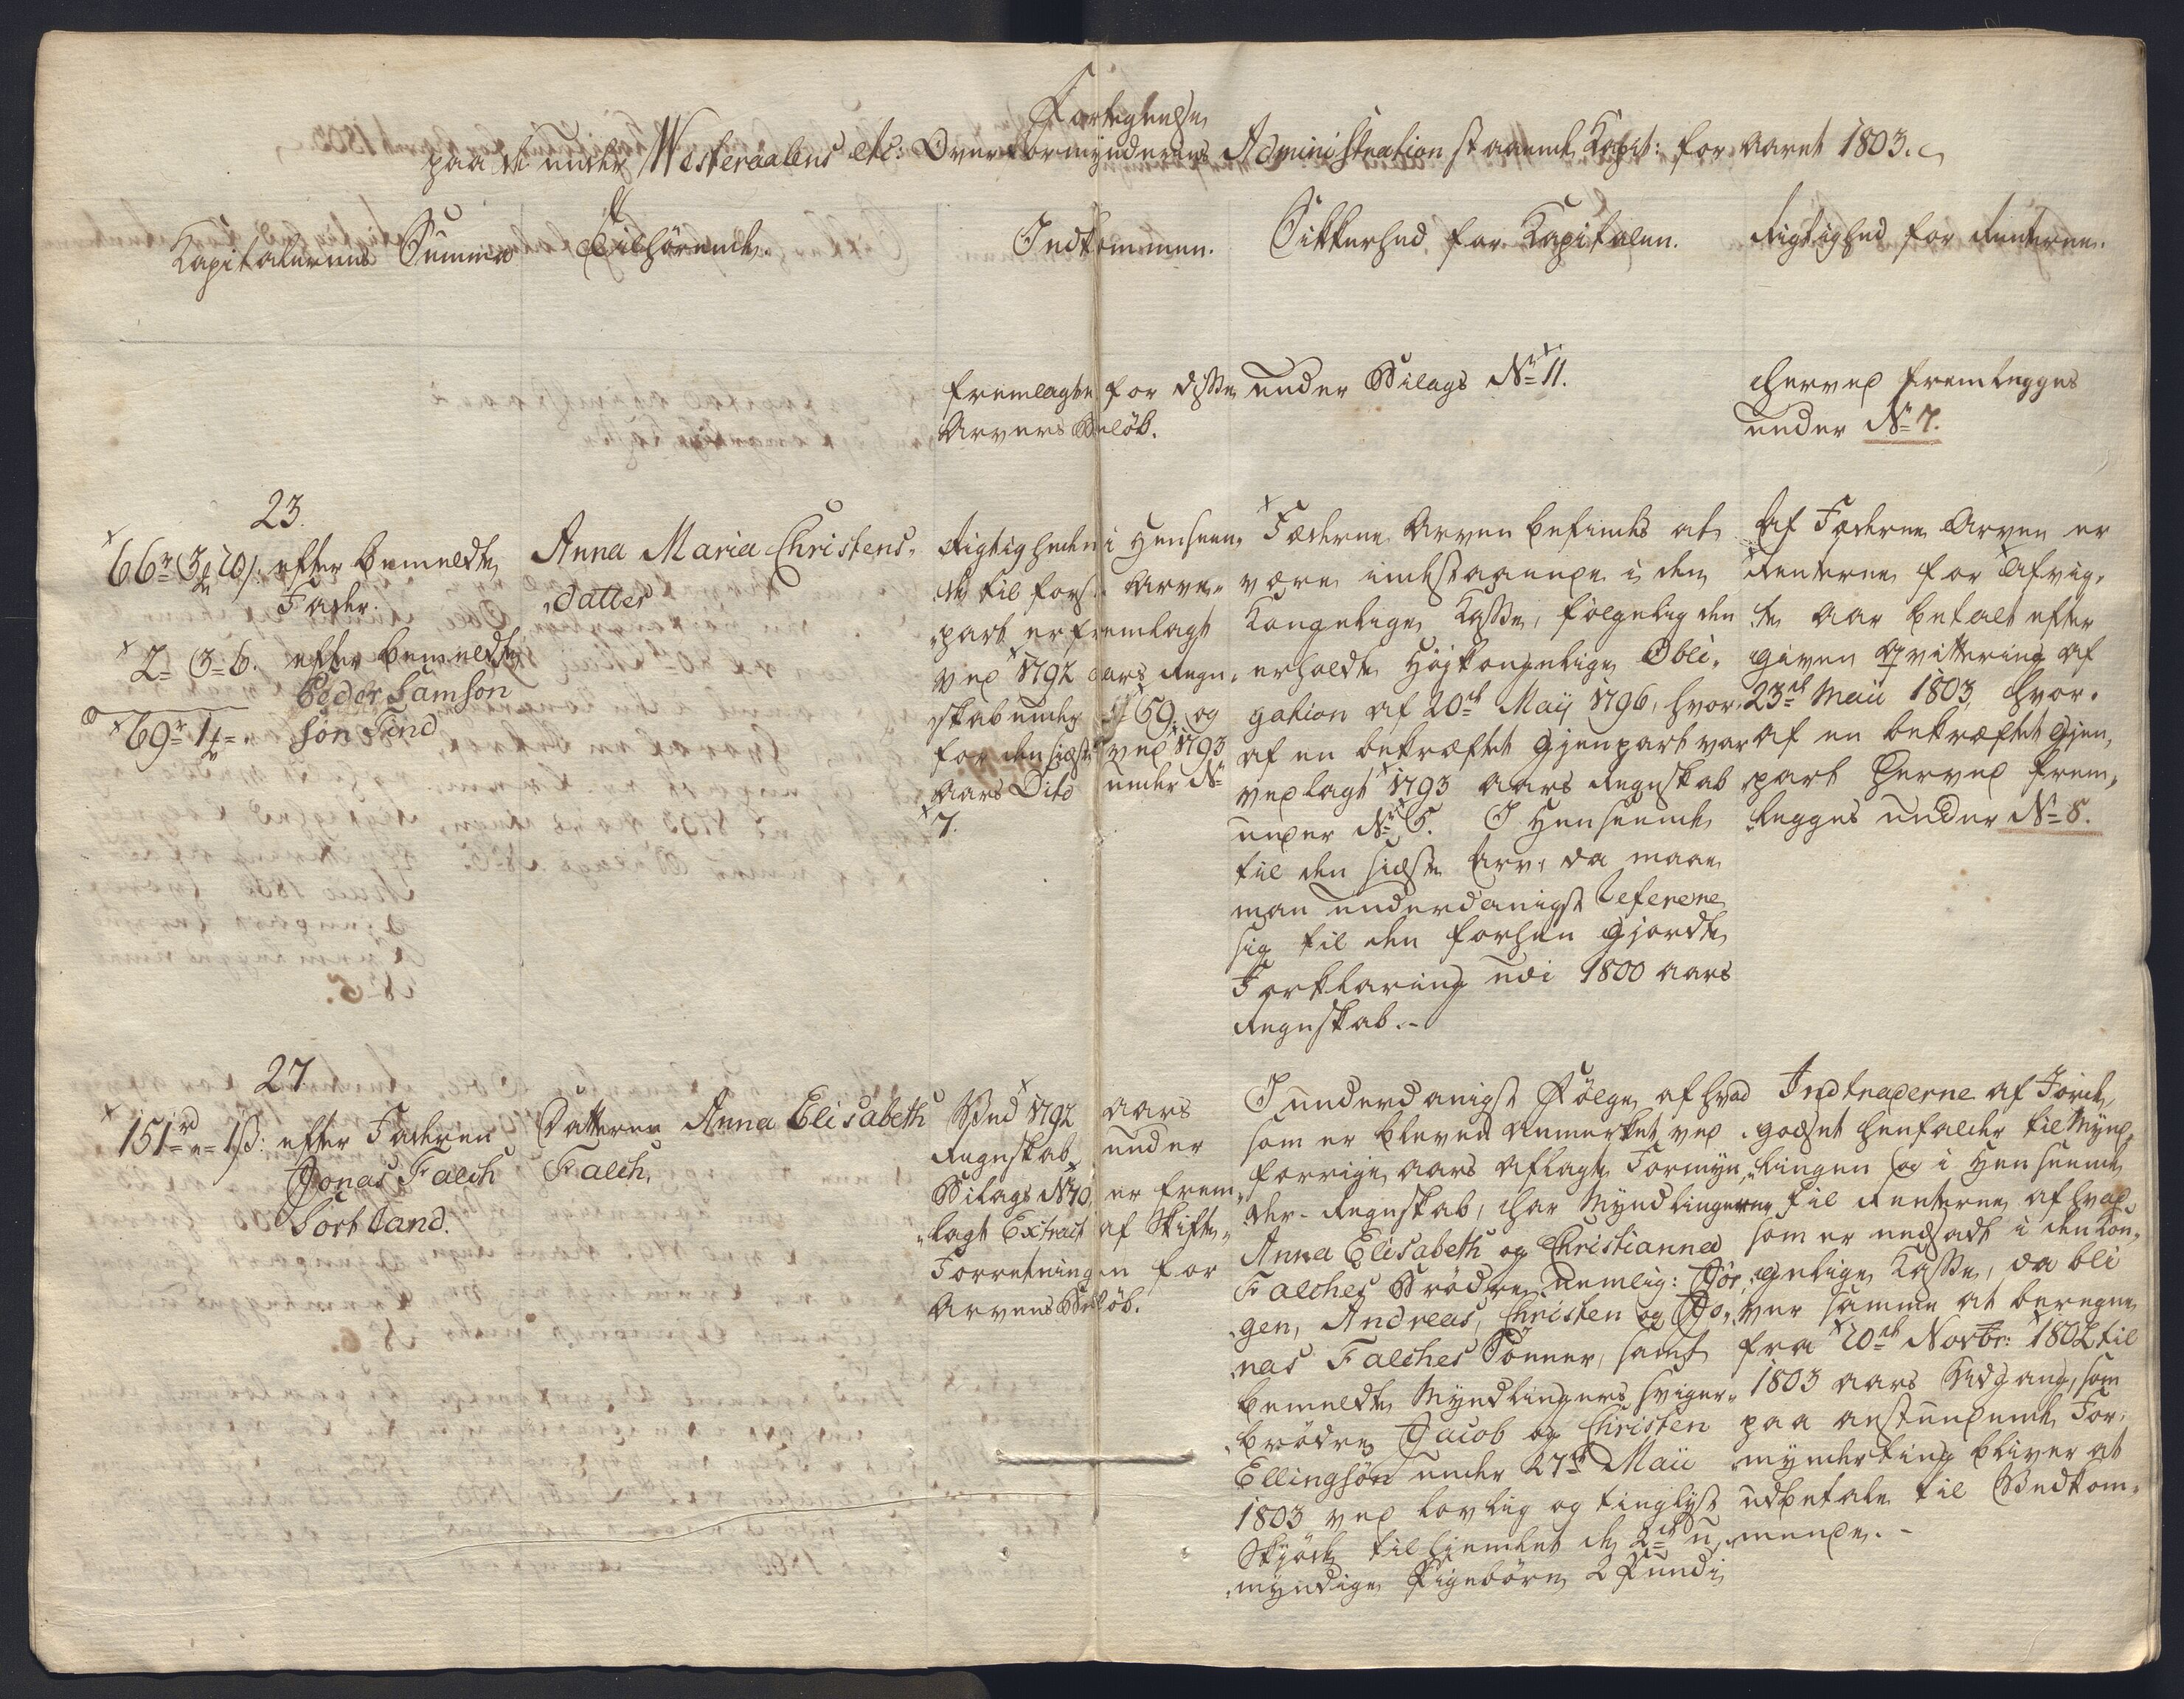 Fortegnelse
paa de under Westeraalens etc: Overformynderens Administration staaende Kapit: for Aaret 1803.
Kapitalernes Summa
Tilhørende.
Indkommen.
Sikkerhed for Kapitalen.
Rigtighed for Renterne.
fremlagte for disse
Arvers Beløb.
under Bilags No 11.
herved fremlegges
under No 7.
23.
66 rd 3 10 s. efter bemeldte
Fader.
2 - 3 - 6. efter bemeldte
Peder Samson
69 rd 1 - - søn Find
Anna Maria Christens-
datter
Rigtigheden i Henseen-
de til første Arve-
part er fremlagt
ved 1792 aars Regn-
skab under No 59. og
for den sidste ved 1793
Aars Dito under No
7.
Fæderne Arven befindes at
være indestaaende i den
Kongelige Kasse, følgelig den
erholdte Højkongelige Obli-
gation af 20de Maij 1796, hvor-
af en bekræftet Gjenpart var
vedlagt 1793 aars Regnskab
under No 5. I Henseende
til den sidste Arv, da maae
man underdanigst referere
sig til den forhen gjordte
Forklaring udi 1800 aars
Regnskab. -
Af Fæderne Arven er
Renterne for Afvig-
te Aar betalt efter
given Qvittering af
23de Maii 1803, hvor-
af en bekræftet Gjen-
part herved frem-
legges under No 8.
27
151 rd - 1 s: efter Faderen
Jonas Falch
Sortland.
Datteren Anna Elisabeth
Falch,
Ved 1792 aars
Regnskab under
Bilags No 40, er frem-
lagt Extract af Skifte-
Forretningen for
Arvens Beløb.
I underdanigst Følge af hvad
som er bleven anmerket ved
forrige aars aflagte Formyn-
der-Regnskab, har Myndlingerne
Anna Elisabeth og Christianna
Falches Brødre, nemlig: Jør-
gen, Andreas, Christen og Jo-
nas Falches Sønner, samt
bemeldte Myndlingers Sviger-
brødre Jacob og Christen
Ellingsøn under 27de Maii
1803 ved lovlig og tinglyst
Skjøde tilhiemlet de 2de u-
myndige Pigebørn 2 Pund i
Indtraderne af Jorde-
godset henfalder til Mynd-
lingen og i Henseende
til Renterne af hvad
som er nedsadt i den Kon-
gelige Kasse, da bli
ver samme at beregne
fra 20de Novbr: 1802 til
1803 aars Udgang, som
paa anstundende For-
mynderting bliver at
udbetale til Vedkom-
mende. -